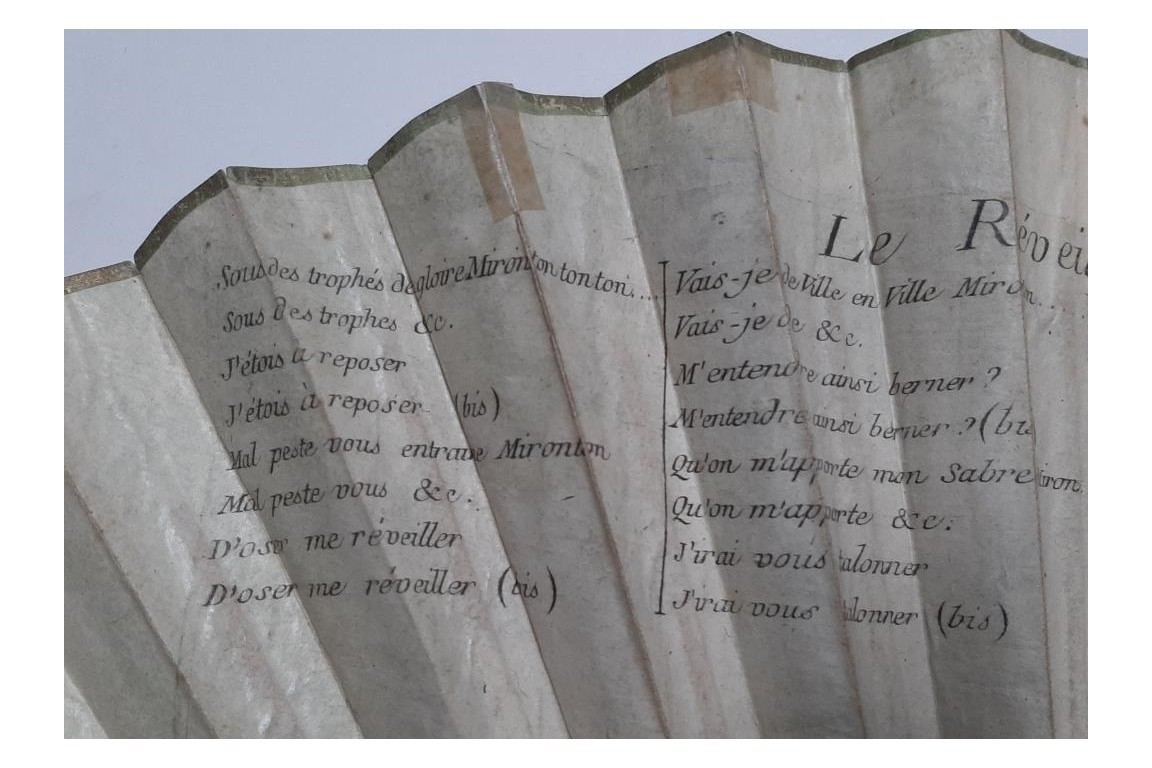 Le Réveil
Sous des trophés de gloire Mironton ton ton....
Sous des trophes &c.
J'étois à reposer
J'étois à reposer (bis)
Mal peste vous entraue Mironton
Mal peste vous &c.
D'oser me réveiller
D'oser me réveiller (bis)
Vais-je de Ville en Ville Miron...
Vais-je de &c.
M'entendre ainsi berner ?
M'entendre ainsi berner ? (bis
Qu'on m'apporte mon Sabre miron.
Qu'on m'apporte &c.
J'irai vous talonner
J'irai vous talonner (bis)